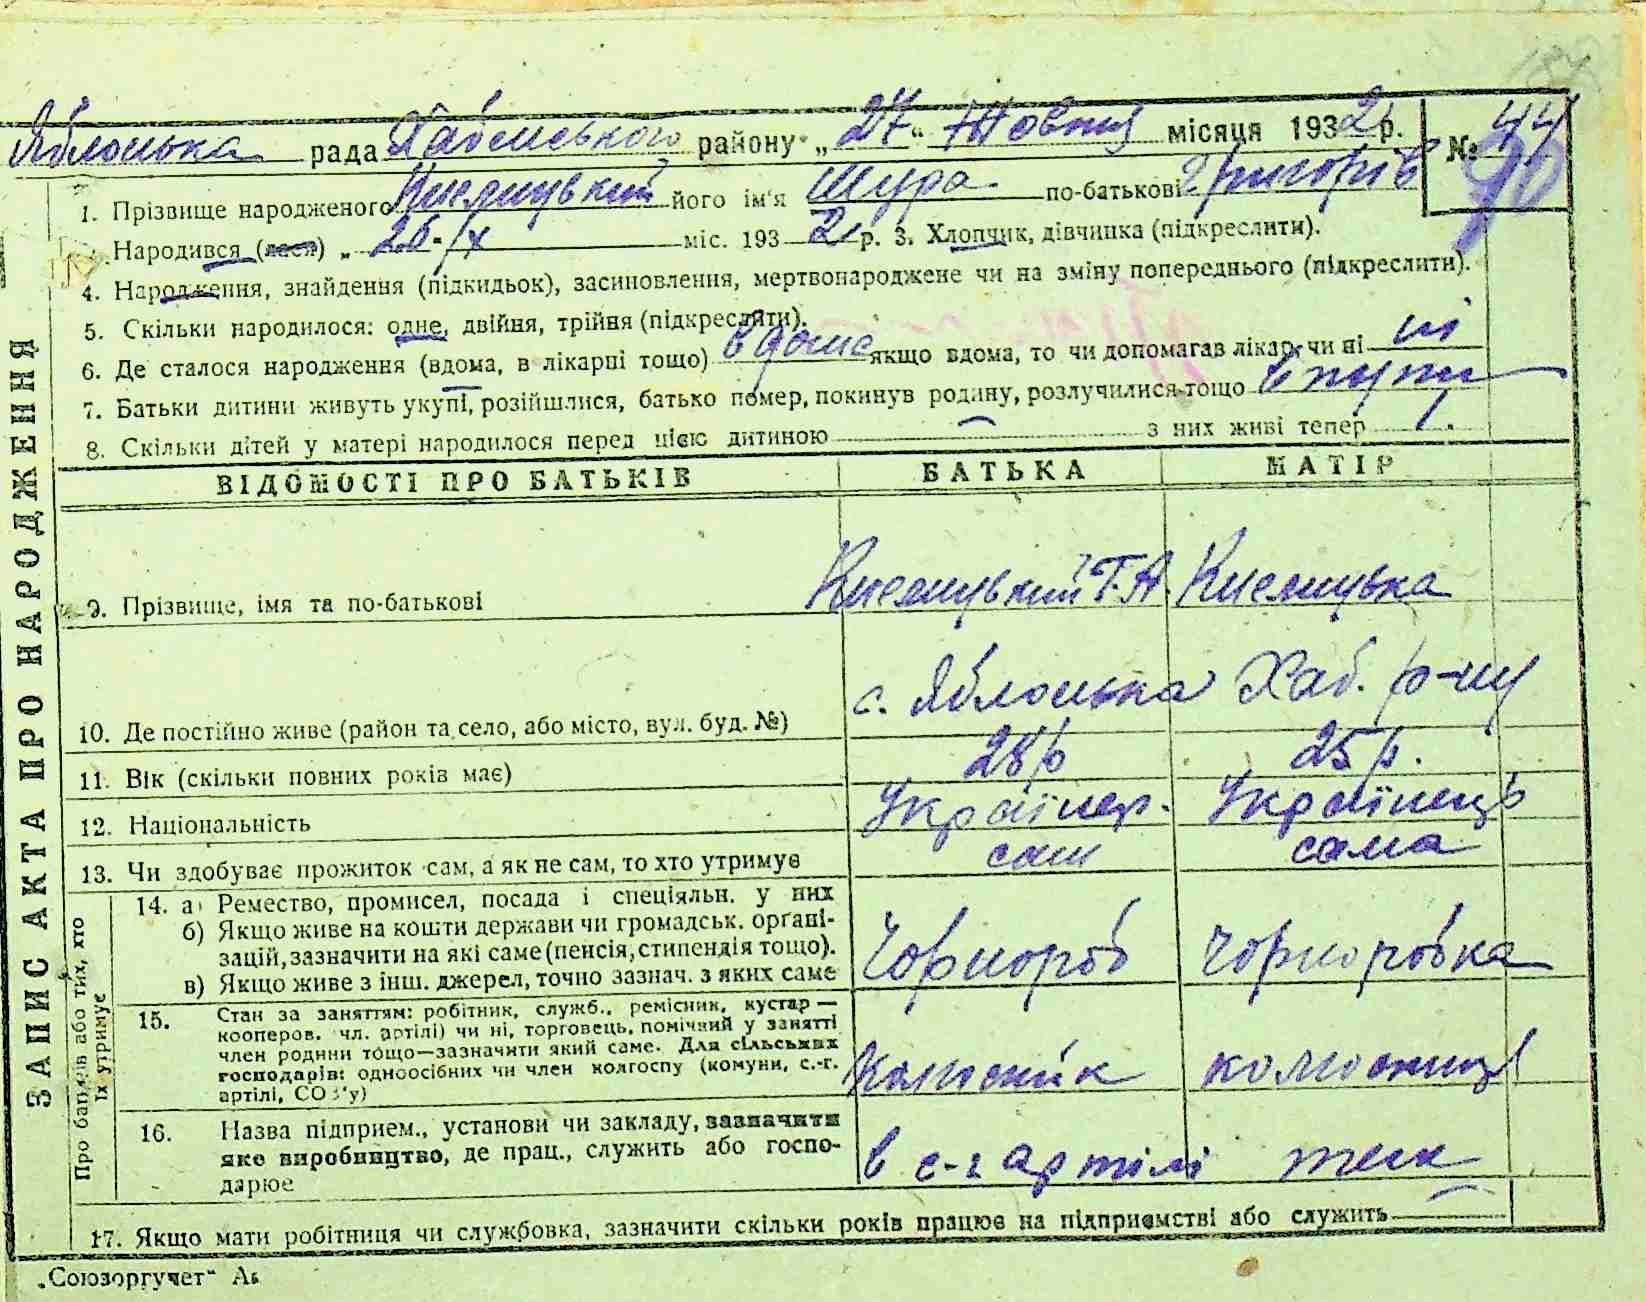 Яблонька рада Хабенського району „27“ Жовтня місяця 1932 р. № 44
1. Прізвище народженого його ім'я Шура по-батькові Григорів
Народився (лася) „ 26-IX міс. 1932 р. 3. Хлопчик, дівчинка (підкреслити).
4. Народження, знайдення (підкидьок), засиновлення, мертвонароджене чи на зміну попереднього (підкреслити).
5. Скільки народилося: одне, двійня, трійня (підкреслити).
6. Де сталося народження (вдома, в лікарні тощо) вдома якщо вдома, то чи допомагав лікар чи ні ні
7. Батьки дитини живуть укупі, розійшлися, батько помер, покинув родину, розлучилися тощо
8. Скільки дітей у матері народилося перед цією дитиною — з них живі тепер
ВІДОМОСТІ ПРО БАТЬКІВ БАТЬКА МАТІР
9. Прізвище, імя та по-батькові Г. А.
10. Де постійно живе (район та село, або місто, вул. буд. №) с. Яблонька Хаб. р-ну
11. Вік (скільки повних років має) 28 р 25 р.
12. Національність Українец. Українець
13. Чи здобуває прожиток сам, а як не сам, то хто утримує сам сама
14. а) Ремество, промисел, посада і спеціяльн. у них
б) Якщо живе на кошти держави чи громадськ. органі-
зацій, зазначити на які саме (пенсія, стипендія тощо). Чорнороб чорноробка
в) Якщо живе з інш. джерел, точно зазнач. з яких саме
15. Стан за заняттям: робітник, служб., ремісник, кустар —
кооперов. чл. артілі) чи ні, торговець, помічний у занятті
член родини тощо—зазначити який саме. Для сільських
господарів: одноосібних чи член колгоспу (комуни, с.-г.
артілі, СОЗ'у)
16. Назва підприєм., установи чи закладу, зазначити
яке виробництво, де прац., служить або госпо- в с-г артілі теж
дарює
17. Якщо мати робітниця чи службовка, зазначити скільки років працює на підприємстві або служить —
ЗАПИС АКТА ПРО НАРОДЖЕННЯ
Про батьків або тих, хто
їх утримує
„Союзоргучет“